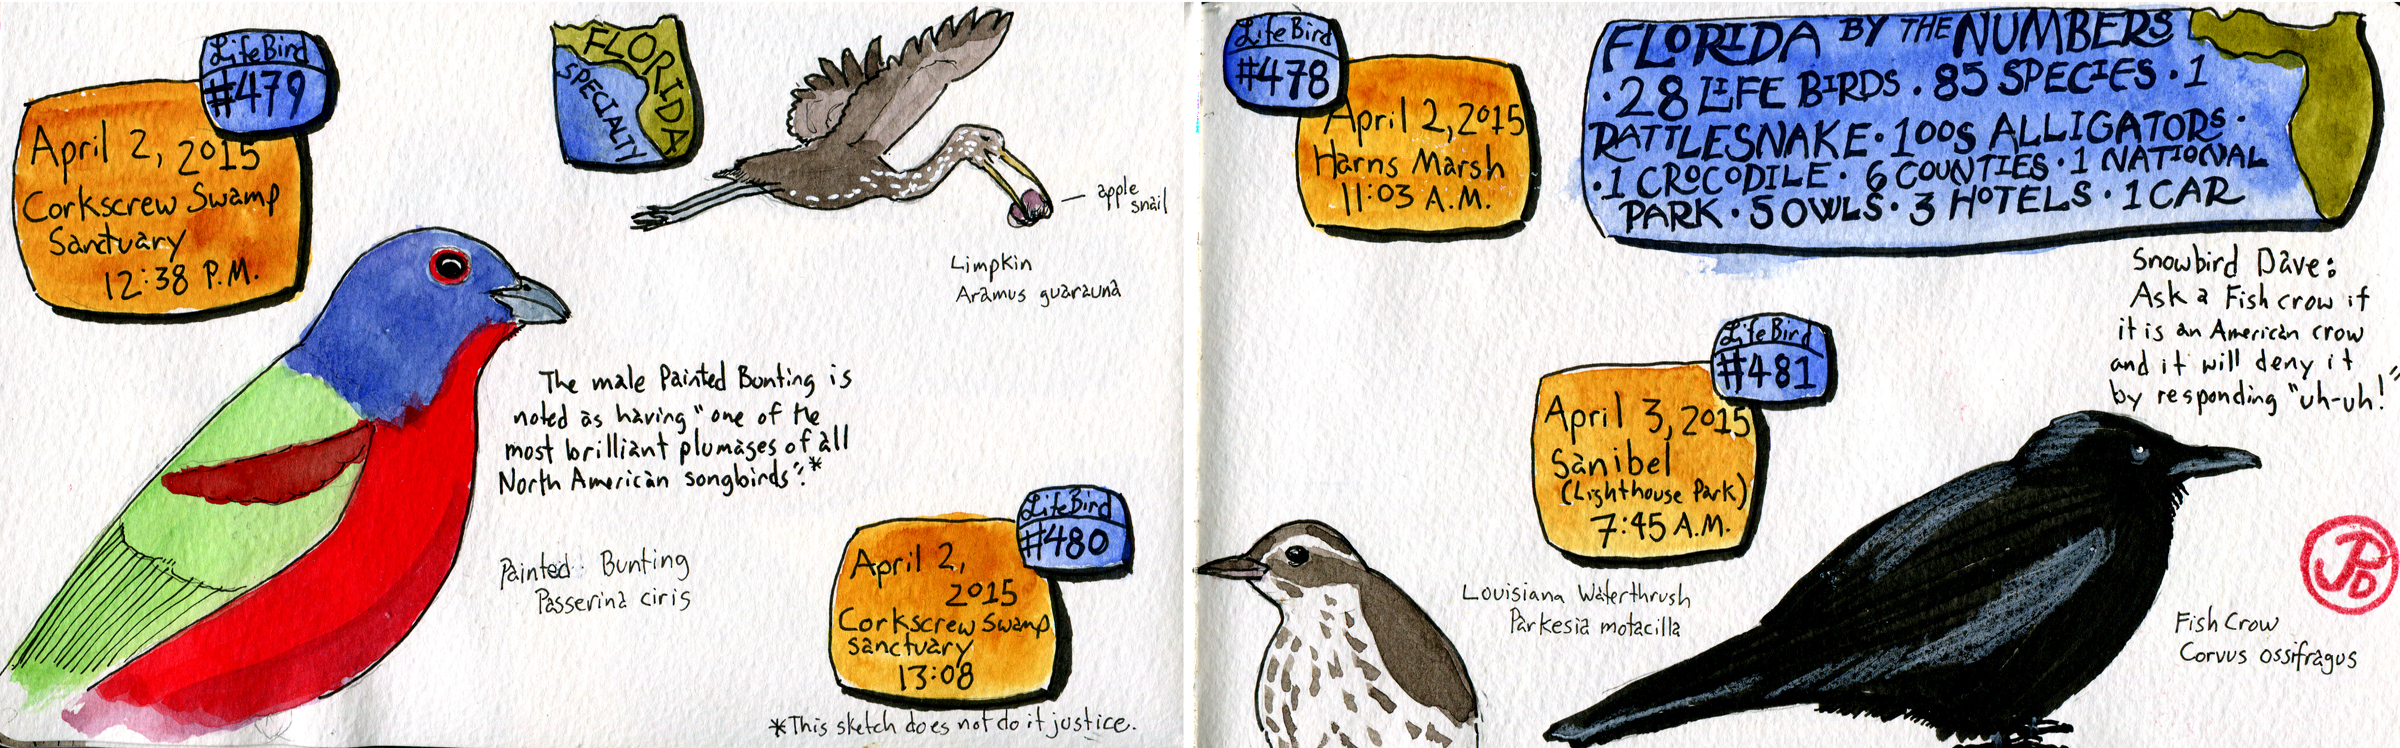 Life Bird
#479
April 2, 2015
Corkscrew Swamp
Sanctuary
12:38 P.M.
FLORIDA
SPECIALTY
apple
snail
Limpkin
Aramus guarauna
The male Painted Bunting is
noted as having "one of the
most brilliant plumages of all
North American songbirds".*
Painted Bunting
Passerina ciris
Life Bird
#480
April 2,
2015
Corkscrew Swamp
sanctuary
13:08
*This sketch does not do it justice.
Life Bird
#478
April 2, 2015
Harns Marsh
11:03 A.M.
FLORIDA BY THE NUMBERS
· 28 LIFE BIRDS · 85 SPECIES · 1
RATTLESNAKE · 100s ALLIGATORS ·
· 1 CROCODILE · 6 COUNTIES · 1 NATIONAL
PARK · 5 OWLS · 3 HOTELS · 1 CAR
Snowbird Dave:
Ask a Fish crow if
it is an American crow
and it will deny it
by responding "uh-uh!"
Life Bird
#481
April 3, 2015
Sanibel
(Lighthouse Park)
7:45 A.M.
Louisiana Waterthrush
Parkesia motacilla
Fish Crow
Corvus ossifragus
JPD